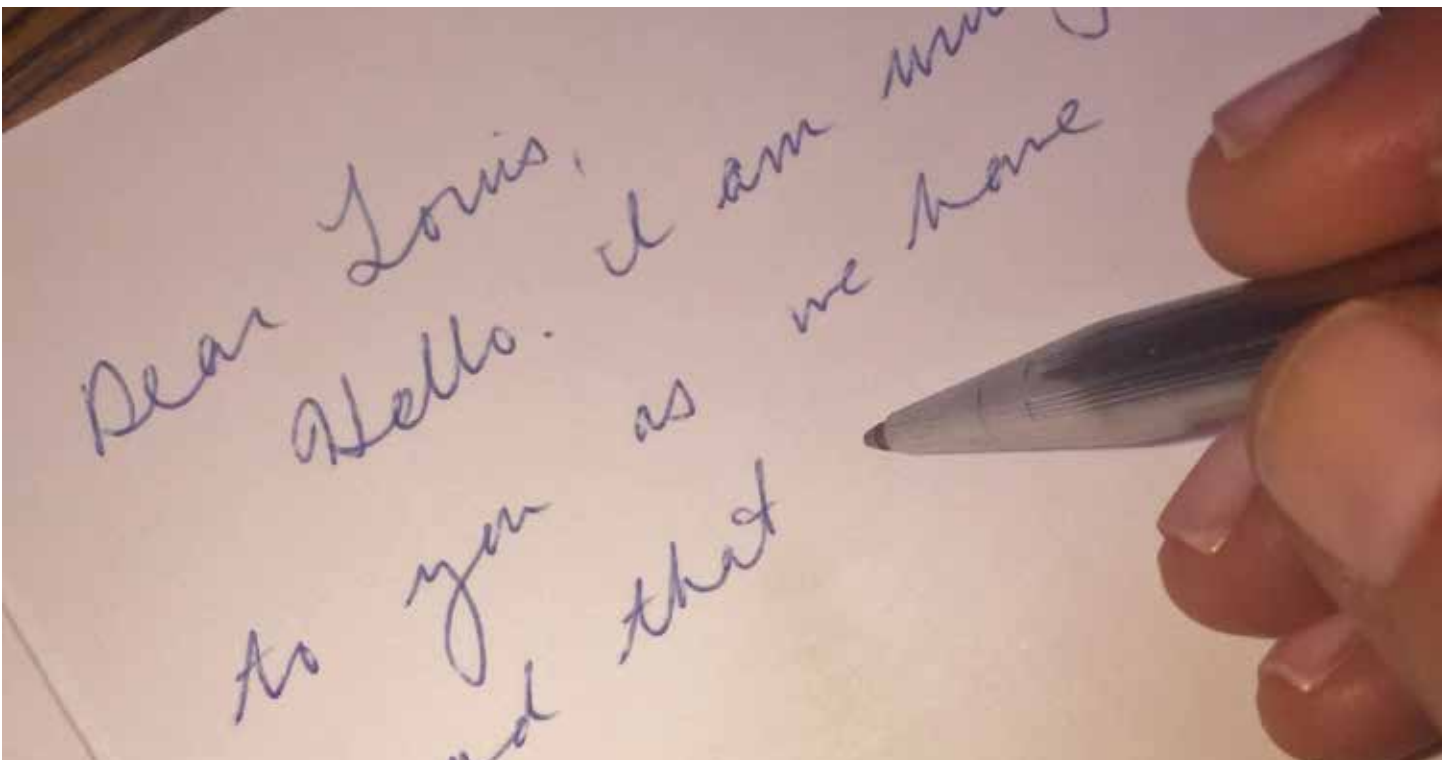 Dear Louis,
Hello. I am
to you as we have
that